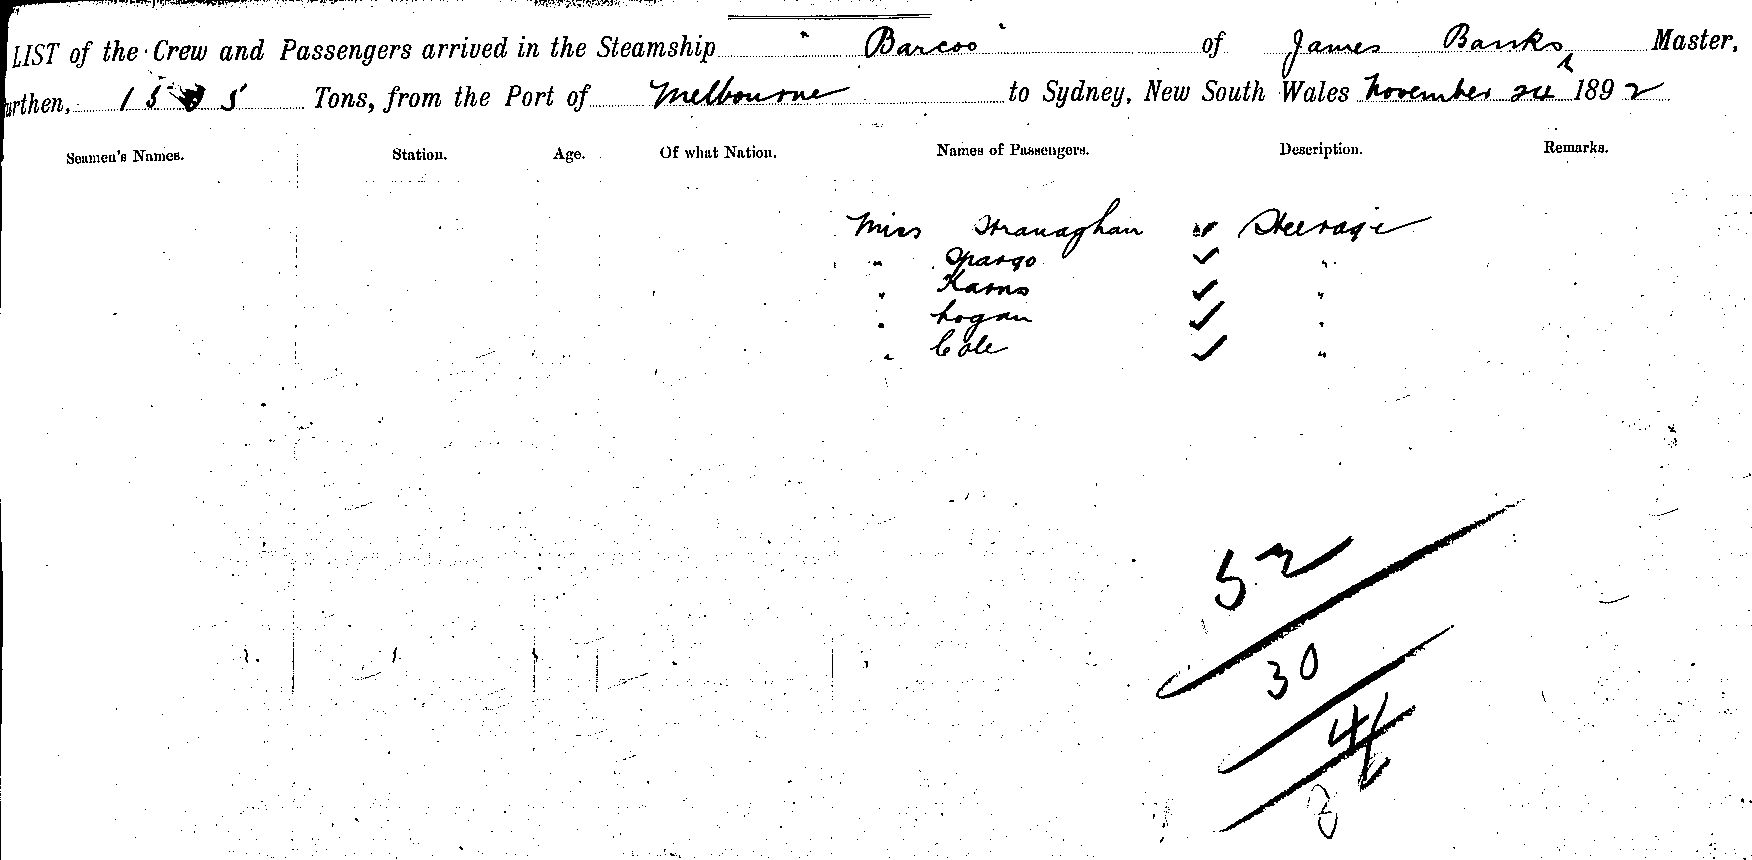 LIST of the Crew and Passengers arrived in the Steamship "Barcoo" of James Banks, Master,
urthen, 15 5 Tons, from the Port of Melbourne to Sydney, New South Wales November 1892
Seamen's Names. Station. Age. Of what Nation. Names of Passengers. Description. Remarks.
Miss Stranaghan ✓ Steerage
" Spargo ✓ "
" Karns ✓ "
" Logan ✓ "
" Cole ✓ "
52
30